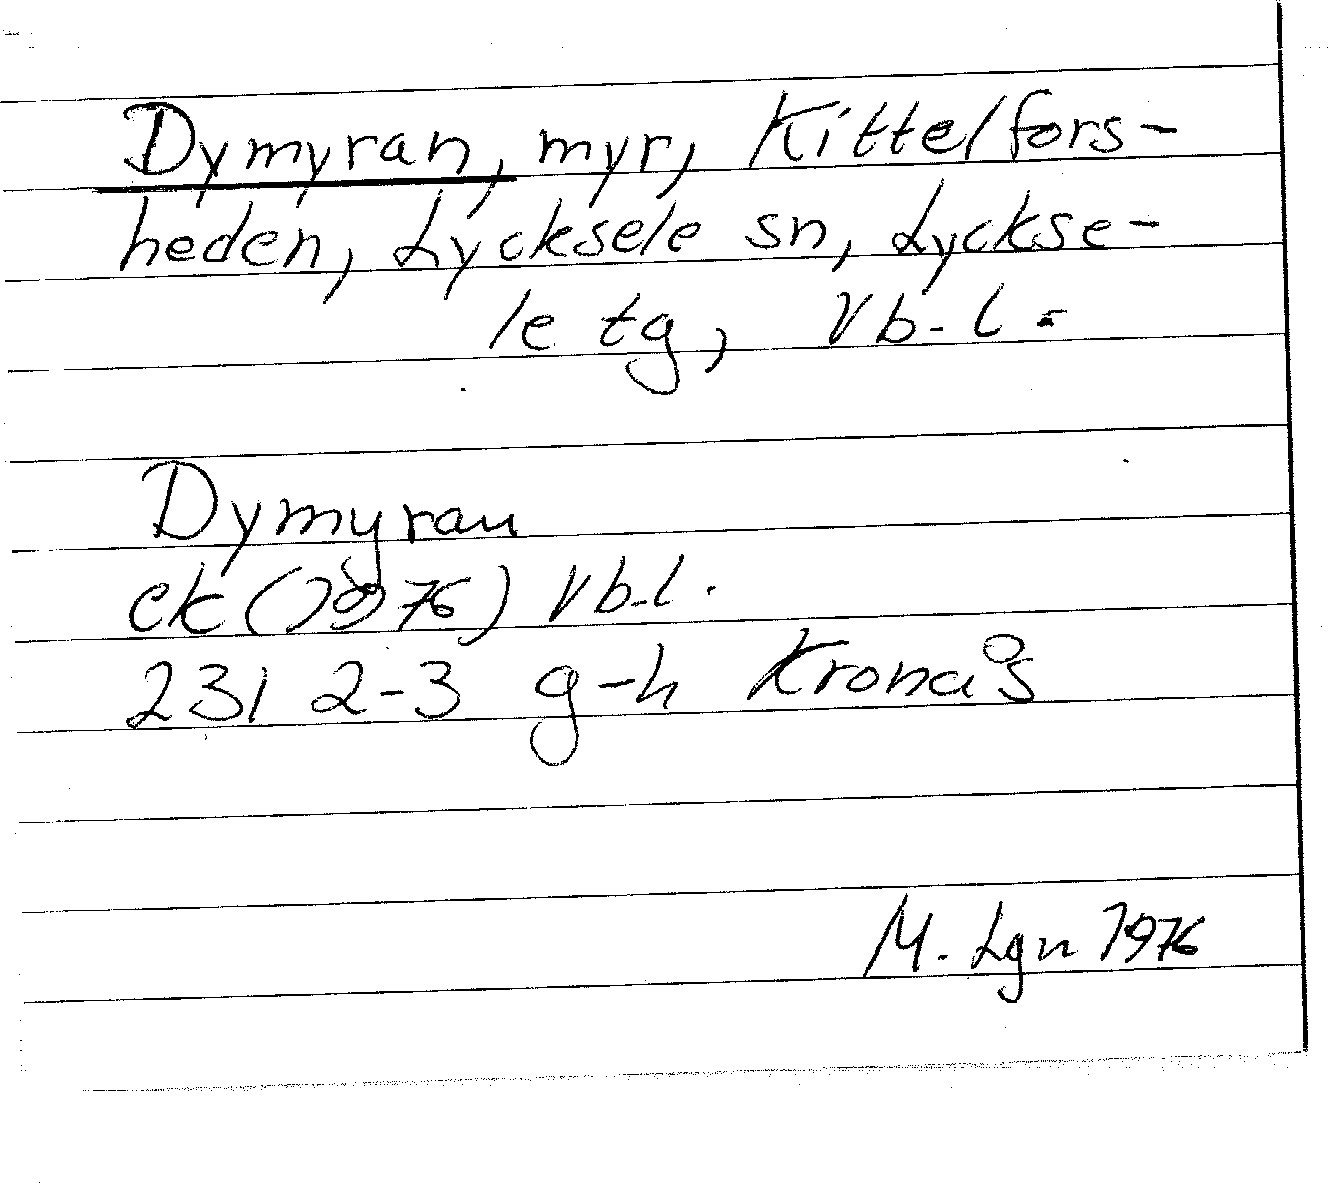 Dymyran, myr, Kittelfors-
heden, Lycksele sn, Lyckse-
le tg, Vb-l.
Dymyran
ek (1976) Vb-l.
231 2-3 g-h Kronås
M. Lgn 1976